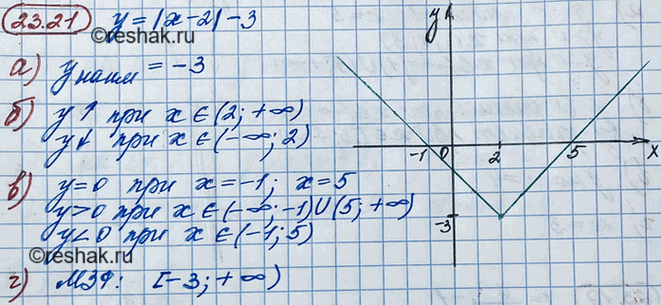 23.21 y = |x-2| -3
©reshak.ru
а) y наим = -3
б) y ↑ при x ∈ (2; +∞)
y ↓ при x ∈ (-∞; 2)
в) y=0 при x=-1; x=5
y>0 при x ∈ (-∞; -1) U (5; +∞)
y<0 при x ∈ (-1; 5)
©reshak.ru
г) МЗФ: [-3; +∞)
y
-1 0 2 5 x
-3
©reshak.ru